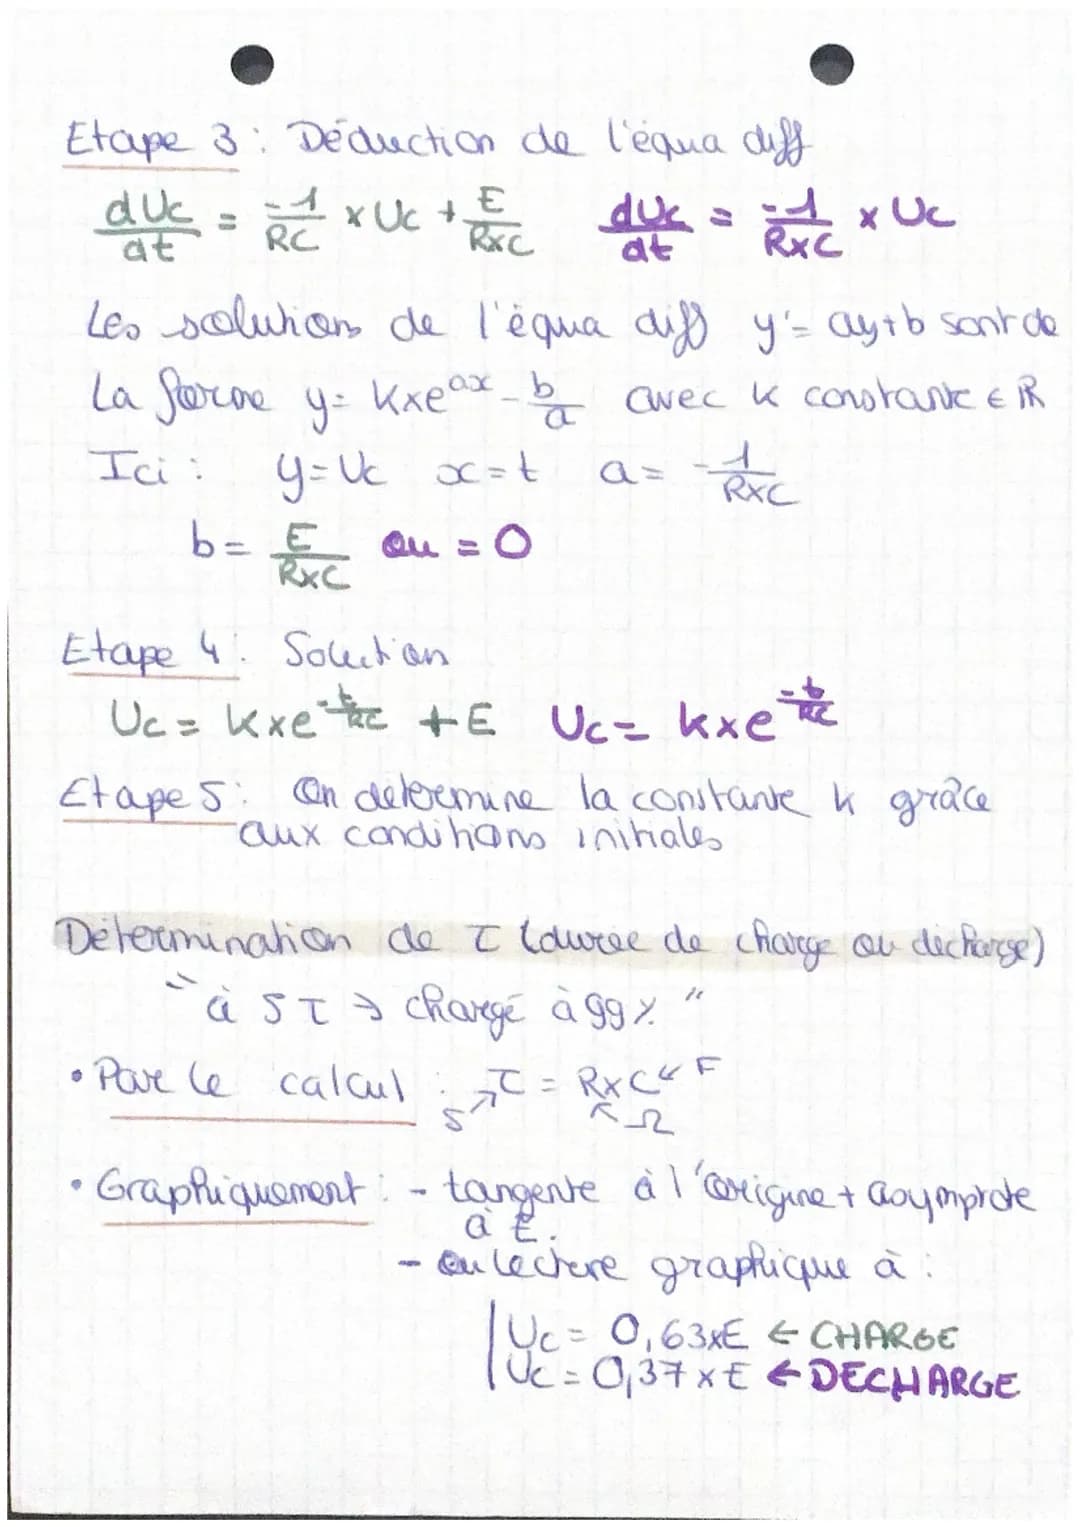 Etape 3 : Déduction de l'équa diff
dUc/dt = -1/RC x Uc + E/RxC   dUc/dt = -1/RxC x Uc
Les solutions de l'équa diff y'= ay+b sont de
la forme y= Kxe^ax - b/a avec k constante ∈ ℝ
Ici : y=Uc x=t a= -1/RxC
b= E/RxC ou = 0
Etape 4 : Solution
Uc= Kxe^-t/RC + E   Uc= kxe^-t/RC
Etape 5 : On détermine la constante k grâce
aux conditions initiales
Détermination de τ (durée de charge ou décharge)
"à 5τ → chargé à 99%"
• Par le calcul : s↗τ = RxC ← F
↖Ω
• Graphiquement : - tangente à l'origine + asymptote
à E.
- ou lecture graphique à :
Uc = 0,63xE ← CHARGE
Uc = 0,37xE ← DECHARGE